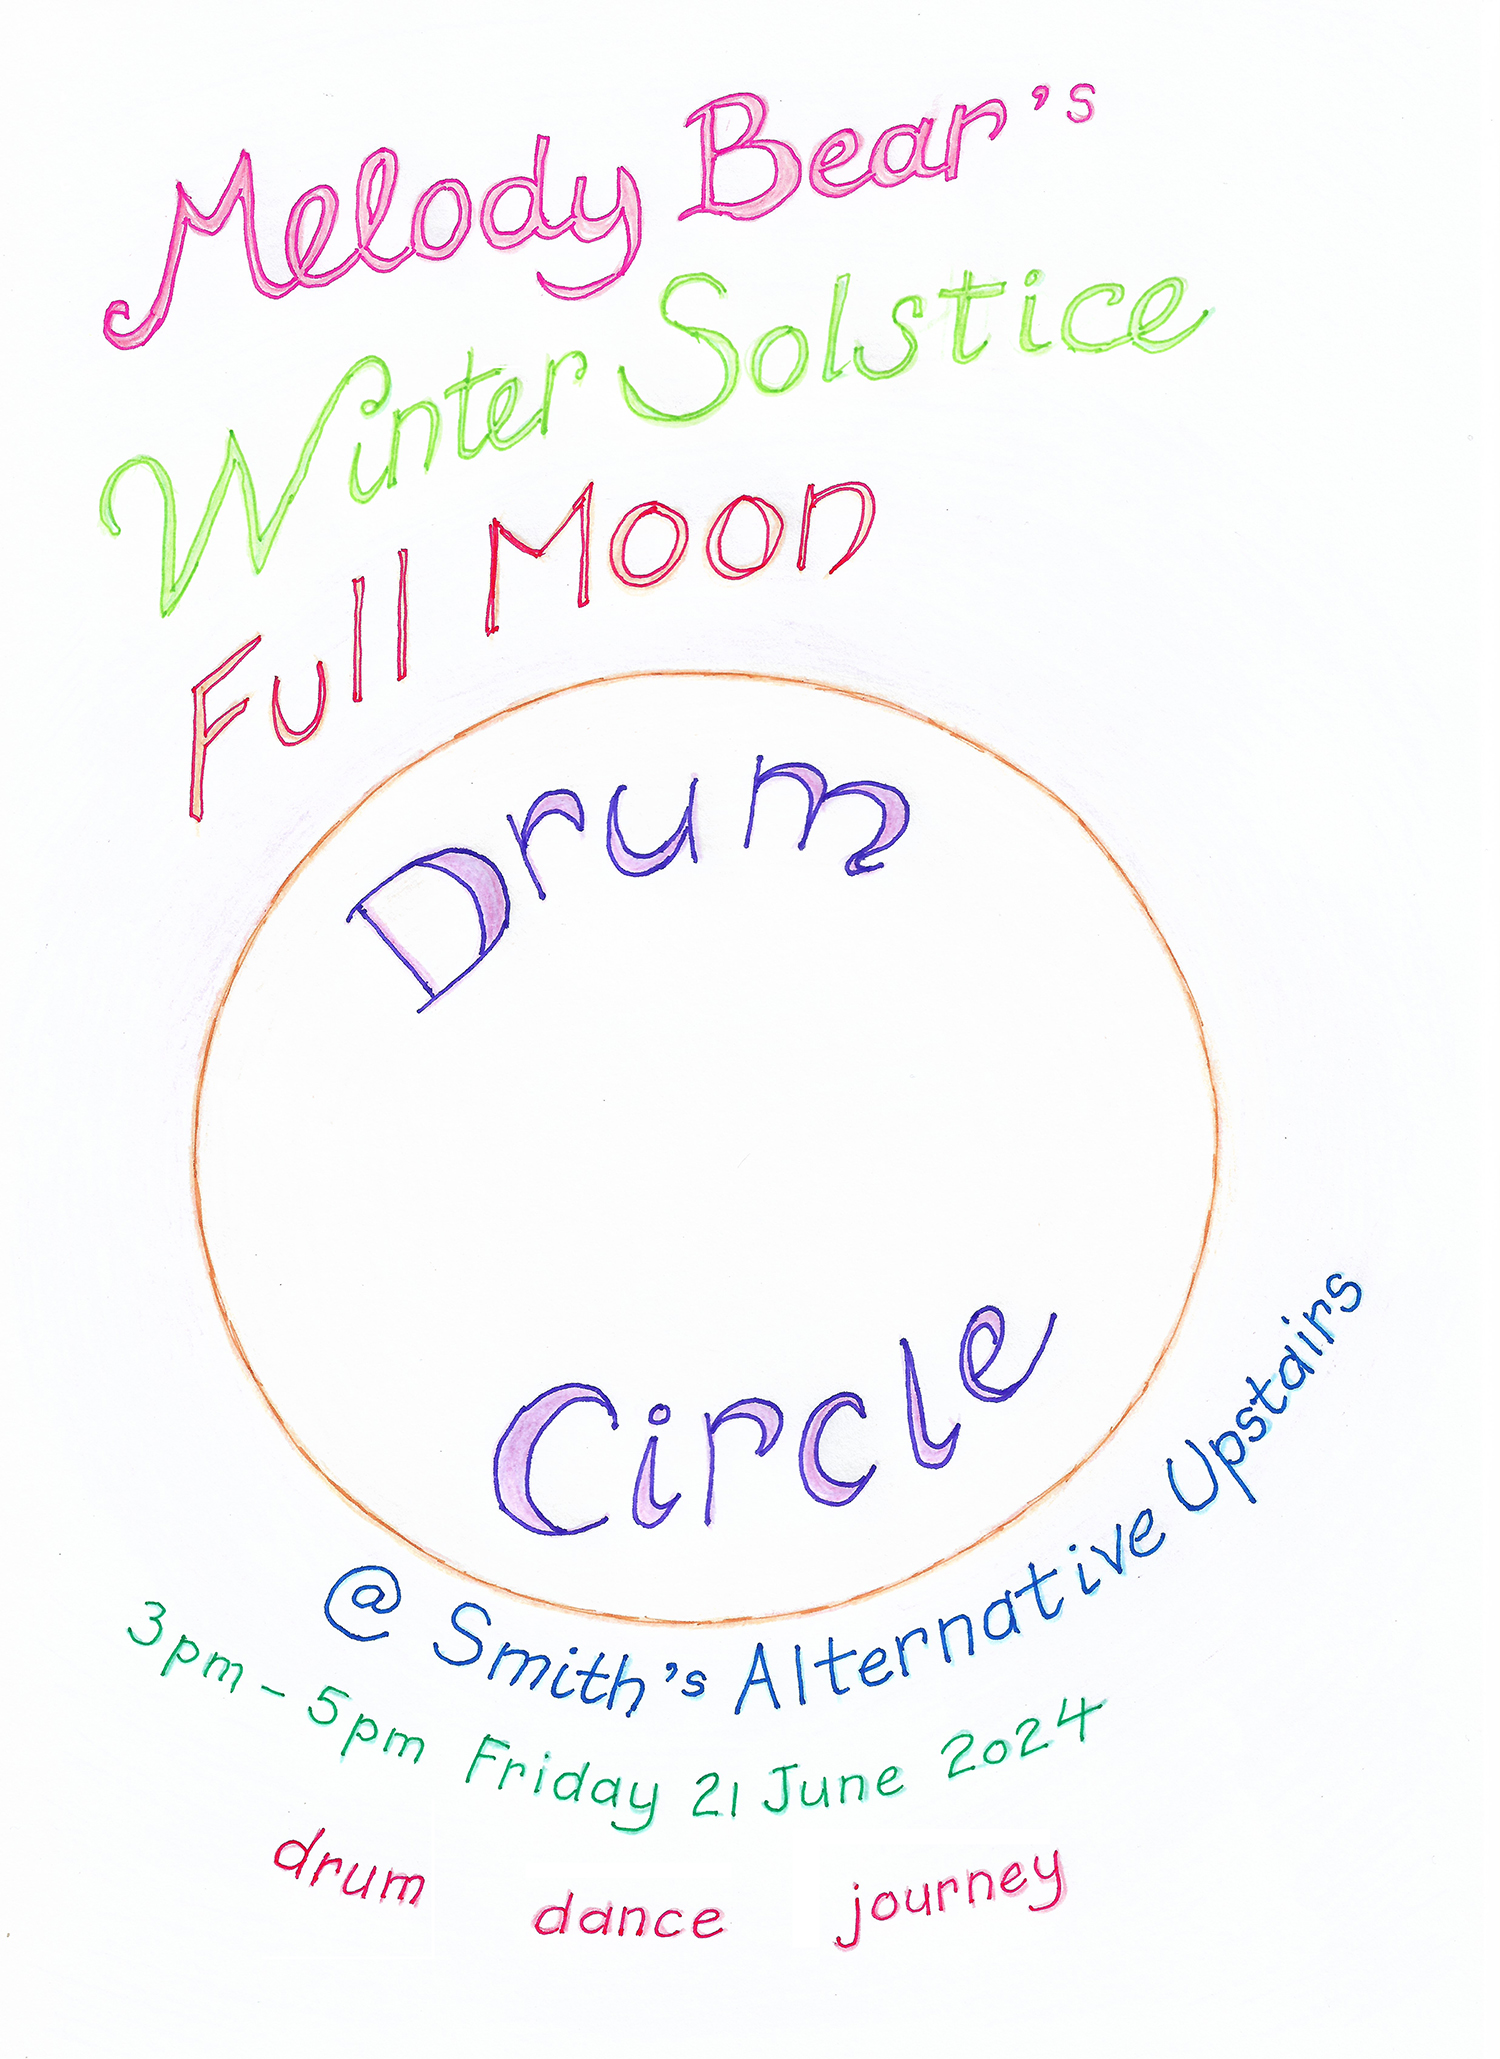 Melody Bear's
Winter Solstice
Full Moon
Drum
Circle
@ Smith's Alternative Upstairs
3pm - 5pm Friday 21 June 2024
drum dance journey